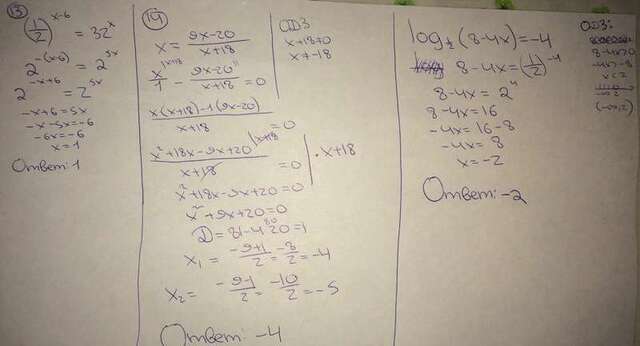 13
(1/2)^(x-6) = 32^x
2^(-(x-6)) = 2^(5x)
2^(-x+6) = 2^(5x)
-x+6=5x
-x-5x=-6
-6x=-6
x=1
Ответ: 1
14
x = (9x-20)/(x+18)
x/1 - (9x-20)/(x+18) = 0
(x(x+18)-1(9x-20))/(x+18) = 0
(x²+18x-9x+20)/(x+18) = 0 | · x+18
x²+18x-9x+20=0
x²+9x+20=0
D = 81-4·20=1
x₁ = (-9+1)/2 = -8/2 = -4
x₂ = (-9-1)/2 = -10/2 = -5
Ответ: -4
ОДЗ
x+18≠0
x≠-18
log_(1/2) (8-4x) = -4
8-4x=(1/2)^(-4)
8-4x = 2^4
8-4x=16
-4x=16-8
-4x=8
x=-2
Ответ: -2
ОДЗ:
8-4x>0
-4x>-8
x<2
(-∞;2)